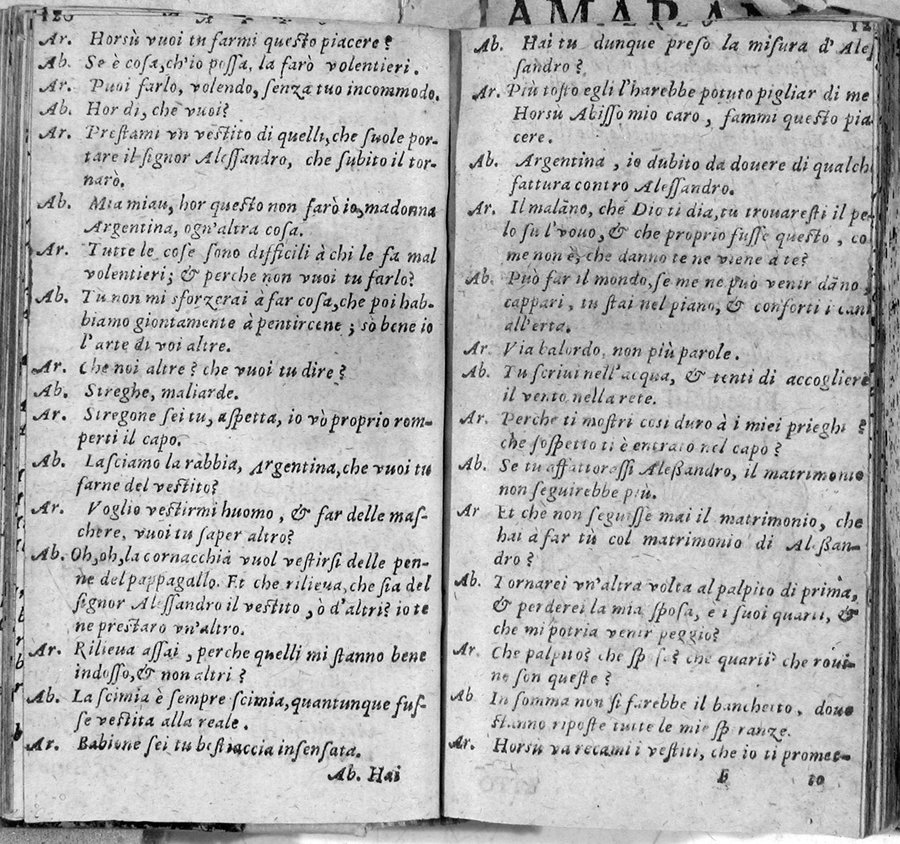 120
Ar. Horsù vuoi tu farmi questo piacere?
Ab. Se è cosa, ch'io possa, la farò volentieri.
Ar. Puoi farlo, volendo, senza tuo incommodo.
Ab. Hor di, che vuoi?
Ar. Prestami vn vestito di quelli, che suole por-
tare il signor Alessandro, che subito il tor-
narò.
Ab. Mia miau, hor questo non farò io, madonna
Argentina, ogn'altra cosa.
Ar. Tutte le cose sono difficili à chi le fa mal
volentieri; & perche non vuoi tu farlo?
Ab. Tu non mi sforzerai à far cosa, che poi hab-
biamo giontamente à pentircene; sò bene io
l'arte di voi altre.
Ar. Che noi altre? che vuoi tu dire?
Ab. Streghe, maliarde.
Ar. Stregone sei tu, aspetta, io vò proprio rom-
perti il capo.
Ab. Lasciamo la rabbia, Argentina, che vuoi tu
farne del vestito?
Ar. Voglio vestirmi huomo, & far delle mas-
chere, vuoi tu saper altro?
Ab. Oh, oh, la cornacchia vuol vestirsi delle pen-
ne del pappagallo. Et che rilieua, che sia del
signor Alessandro il vestito, ò d'altri? io te
ne prestaro vn'altro.
Ar. Rilieua assai, perche quelli mi stanno bene
indosso, & non altri?
Ab. La scimia è sempre scimia, quantunque fus-
se vestita alla reale.
Ar. Babione sei tu bestiaccia insensata.
Ab. Hai
AMARA
12
Ab. Hai tu dunque preso la misura d'Ales
sandro?
Ar. Più tosto egli l'harebbe potuto pigliar di me
Horsù Abisso mio caro, fammi questo pia
cere.
Ab. Argentina, io dubito da douere di qualche
fattura contro Alessandro.
Ar. Il malãno, che Dio ti dia, tu trouaresti il pe-
lo su l'vouo, & che proprio fusse questo, co
me non è, che danno te ne viene à te?
Ab. Può far il mondo, se me ne può venir dãno,
cappari, tu stai nel piano, & conforti i cani
all'erta.
Ar. Via balordo, non più parole.
Ab. Tu scriui nell'acqua, & tenti di accogliere
il vento nella rete.
Ar. Perche ti mostri così duro à i miei prieghi?
che sospetto ti è entrato nel capo?
Ab. Se tu affattorassi Alessandro, il matrimonio
non seguirebbe più.
Ar Et che non seguisse mai il matrimonio, che
hai à far tù col matrimonio di Alessan-
dro?
Ab. Tornarei vn'altra volta al palpito di prima,
& perderei la mia sposa, e i suoi quarti, &
che mi potria venir peggio?
Ar. Che palpito? che sposa? che quarti? che roui-
ne son queste?
Ab In somma non si farebbe il banchetto, doue
stanno riposte tutte le mie speranze.
Ar. Horsù va recami i vestiti, che io ti promet-
F
to